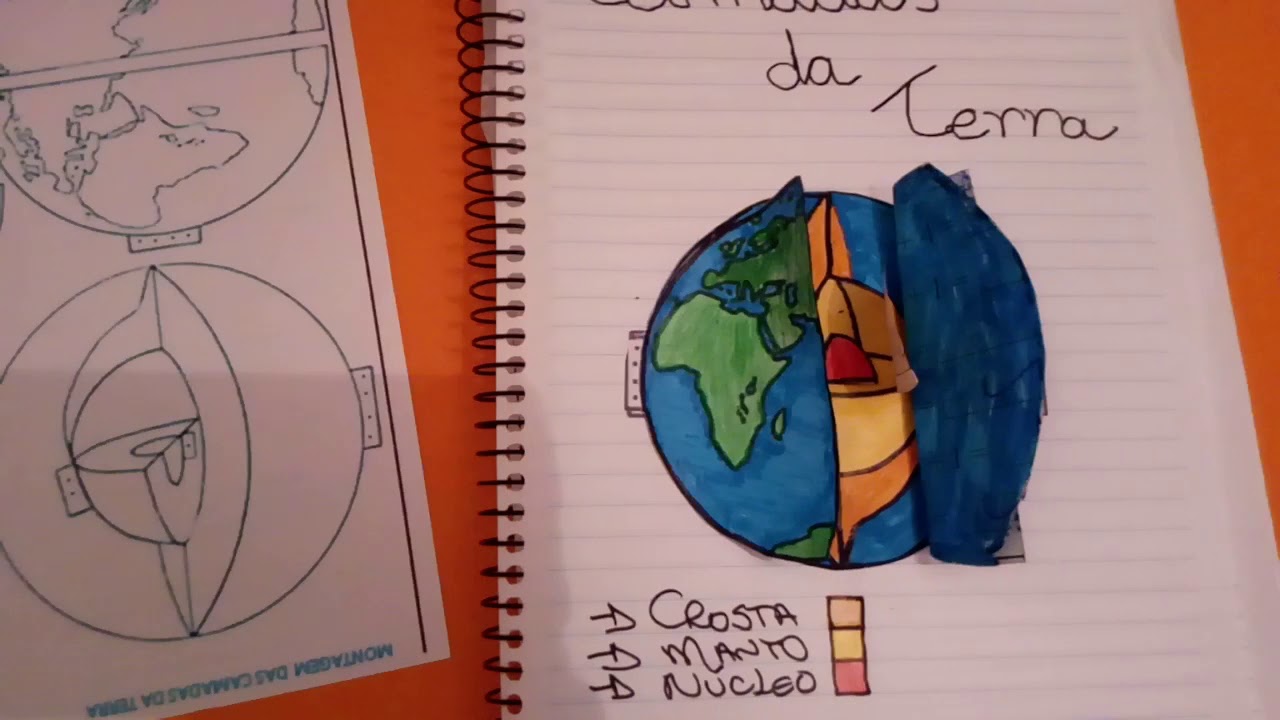 da
Terra
→ CROSTA
→ MANTO
→ NUCLEO
MONTAGEM DAS CAMADAS DA TERRA